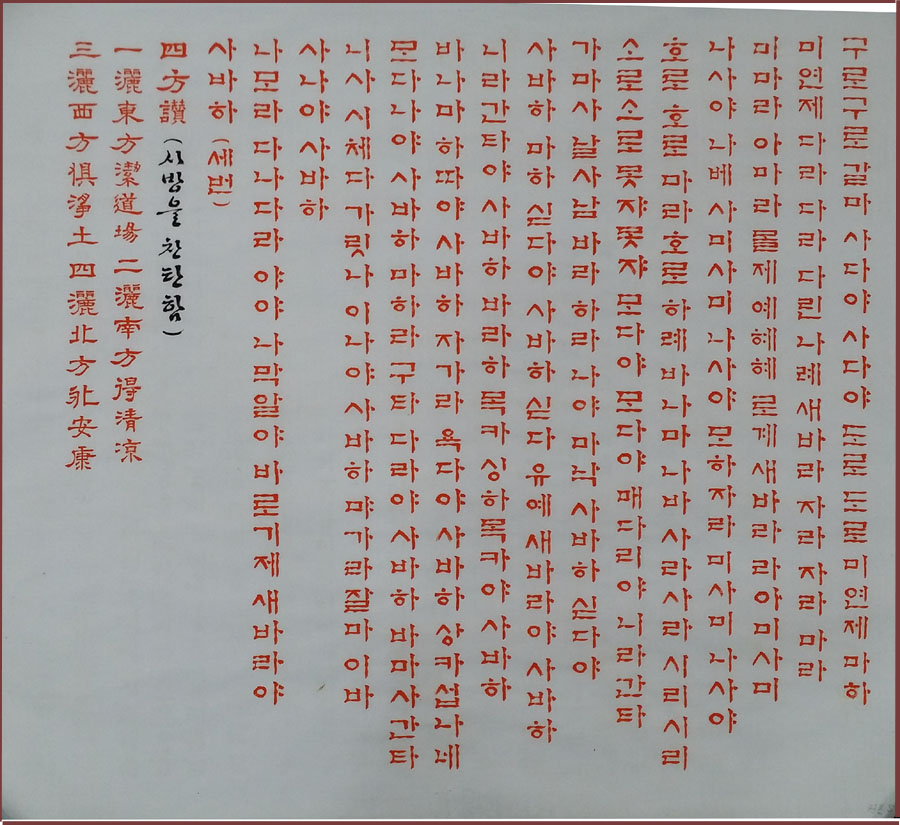 구로구로갈마사다야 사다야 도로도로미연제 마하
미연제 다라다라 다린나례 새바라 자라자라 마라
미마라 아마라 몰제 예혜혜 로계새바라 라아미사미
나사야 나베 사미사미 나사야 모하자라 미사미 나사야
호로호로 마라호로 하례 바나마 나바 사라사라 시리시리
소로소로 못쟈못쟈 모다야 모다야 매다리야 니라간타
가마사 날사남 바라하라나야 마낙 사바하 싣다야
사바하 마하싣다야 사바하 싣다유예새바라야 사바하
니라간타야 사바하 바라하목카 싱하목카야 사바하
바나마하따야 사바하 자가라욕다야 사바하 상카섭나네
모다나야 사바하 마하라구타다라야 사바하 바마사간타
니사시체다 가릿나이나야 사바하 먀가라잘마이바
사나야 사바하
나모라 다나다라 야야 나막알야 바로기제새바라야
사바하 (세번)
四方讃 (사방을 찬탄함)
一灑東方潔道場 二灑南方得清凉
三灑西方俱淨土 四灑北方永安康